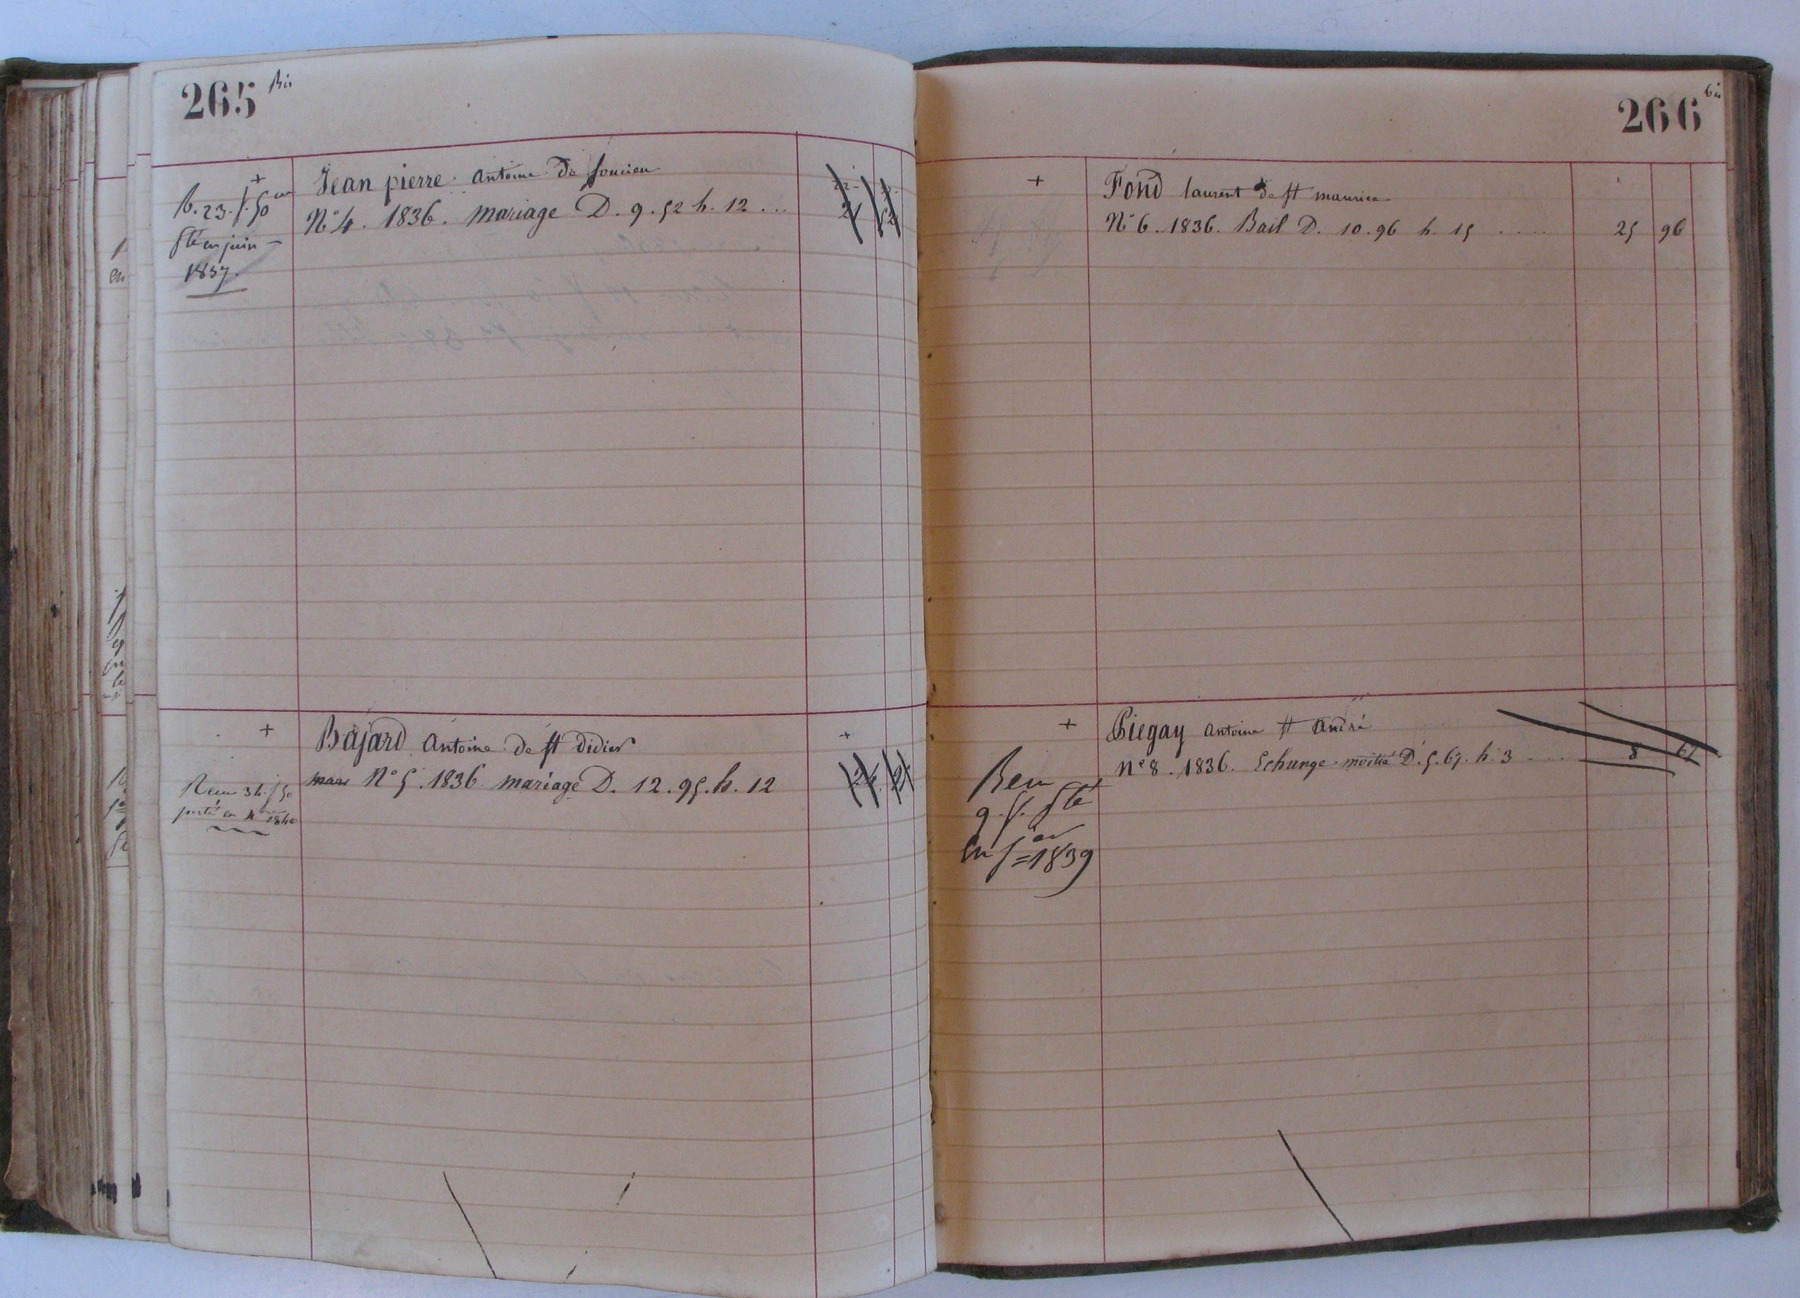 265 bis
+
R. 23. f. 50
en juin
1837.
Jean pierre Antoine De Soucieu
N° 4. 1836. Mariage D. 9. 52 h. 12 ...
21 52
+
Bajard Antoine De St Didier
+
mars N° 5. 1836 mariage D. 12. 95. h. 12
24
Reçu 34. f 50
porté en 1840
266 bis
+
Fond laurent De St maurice
N° 6. 1836. Bail D. 10. 96 h. 15 ..... 25 96
+
Piegay Antoine St André
N° 8. 1836. Echange moitié D. 5. 67. h. 3 .... 8 67
Reçu
9. f.
en 1839